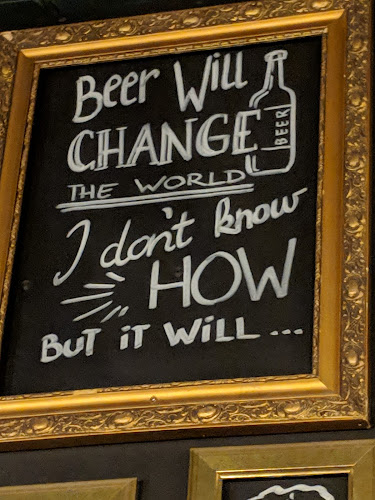 Beer Will
CHANGE
BEER
THE WORLD
I don't know
HOW
BUT iT WiLL ...